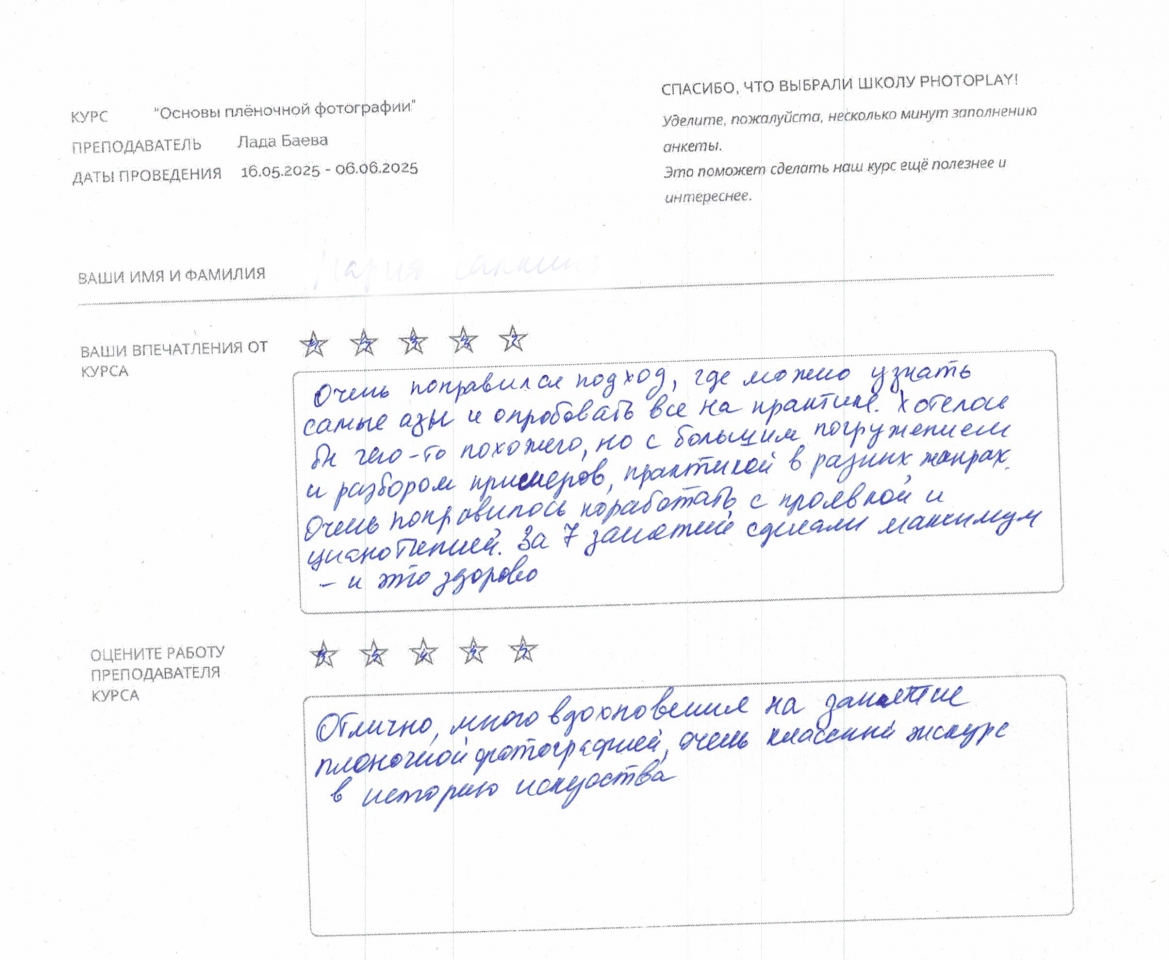 КУРС "Основы плёночной фотографии"
ПРЕПОДАВАТЕЛЬ Лада Баева
ДАТЫ ПРОВЕДЕНИЯ 16.05.2025 - 06.06.2025
СПАСИБО, ЧТО ВЫБРАЛИ ШКОЛУ PHOTOPLAY!
Уделите, пожалуйста, несколько минут заполнению
анкеты.
Это поможет сделать наш курс ещё полезнее и
интереснее.
ВАШИ ИМЯ И ФАМИЛИЯ Мария
ВАШИ ВПЕЧАТЛЕНИЯ ОТ
КУРСА
Очень понравился подход, где можно узнать
самые азы и опробовать все на практике. Хотелось
бы чего-то похожего, но с большим погружением
и разбором примеров, практикой в разных жанрах.
Очень понравилось поработать с проявкой и
цианотипией. За 7 занятий сделали максимум
– и это здорово
ОЦЕНИТЕ РАБОТУ
ПРЕПОДАВАТЕЛЯ
КУРСА
Отлично, много вдохновения на занятие
пленочной фотографией, очень классный экскурс
в историю искусства